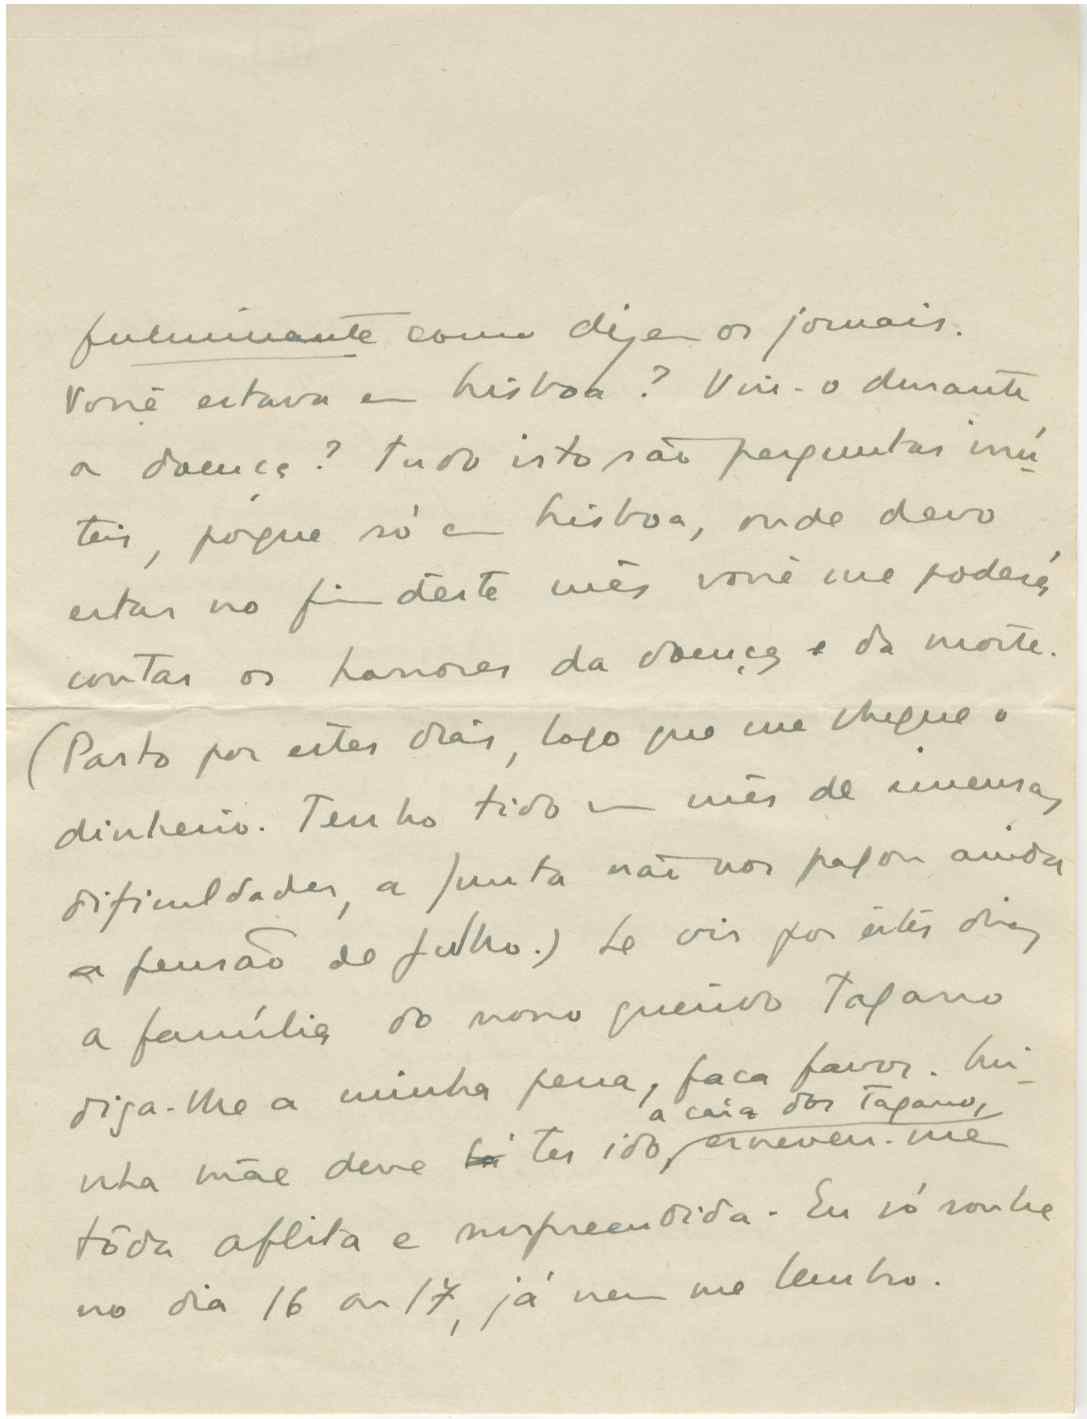 fulminante como dizem os jornais.
Você estava em Lisboa? Viu-o durante
a doença? Tudo isto são perguntas inú-
teis, porque só em Lisboa, onde devo
estar no fim dêste mês você me poderá
contar os horrores da doença e da morte.
(Parto por estes dias, logo que me chegue o
dinheiro. Tenho tido um mês de imensas
dificuldades, a Junta não nos pagou ainda
a pensão de Julho.) Se vir por êstes dias
a família do nosso querido Tagarro
diga-lhe a minha pena, faca favor. Mi-
a casa dos Tagarro,
nha mãe deve lá ter ido, escreveu-me
tôda aflita e surpreendida. Eu só soube
no dia 16 ou 17, já nem me lembro.